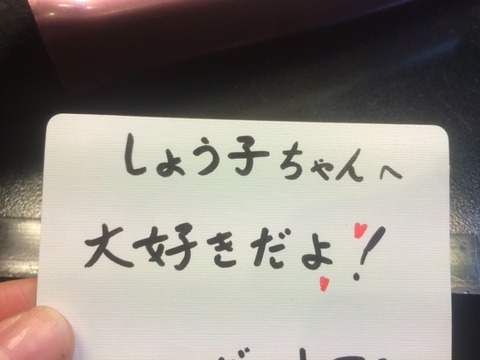 しょう子ちゃんへ
大好きだよ!